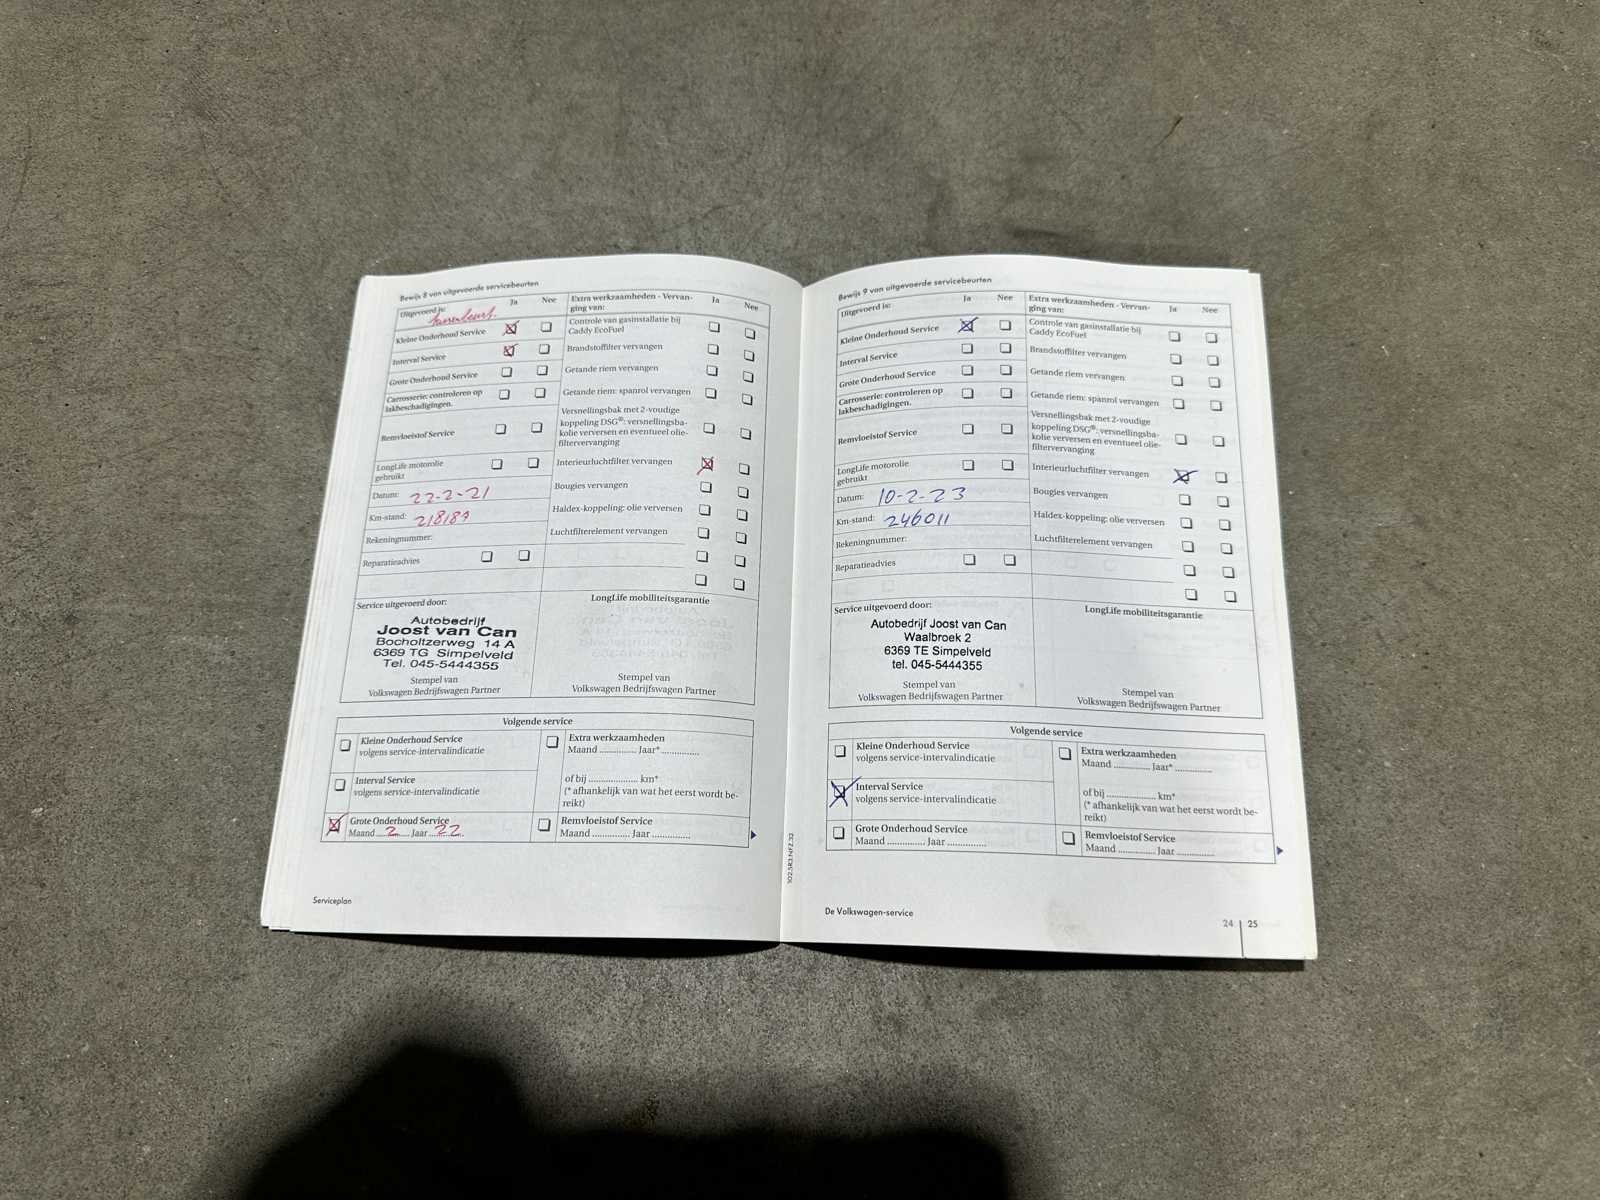 Bewijs 8 van uitgevoerde servicebeurten
Uitgevoerd is:
Ja Nee
Kleine Onderhoud Service
Interval Service
Grote Onderhoud Service
Carrosserie: controleren op
lakbeschadigingen.
Remvloeistof Service
LongLife motorolie
gebruikt
Datum: 22-2-21
Km-stand: 218187
Rekeningnummer:
Reparatieadvies
Extra werkzaamheden - Vervan-
ging van:
Ja Nee
Controle van gasinstallatie bij
Caddy EcoFuel
Brandstoffilter vervangen
Getande riem vervangen
Getande riem: spanrol vervangen
Versnellingsbak met 2-voudige
koppeling DSG®: versnellingsba-
kolie verversen en eventueel olie-
filtervervanging
Interieurluchtfilter vervangen
Bougies vervangen
Haldex-koppeling: olie verversen
Luchtfilterelement vervangen
Service uitgevoerd door:
Autobedrijf
Joost van Can
Bocholtzerweg 14 A
6369 TG Simpelveld
Tel. 045-5444355
Stempel van
Volkswagen Bedrijfswagen Partner
LongLife mobiliteitsgarantie
Stempel van
Volkswagen Bedrijfswagen Partner
Volgende service
Kleine Onderhoud Service
volgens service-intervalindicatie
Interval Service
volgens service-intervalindicatie
Grote Onderhoud Service
Maand 2 Jaar 22
Extra werkzaamheden
Maand .............. Jaar* ..............
of bij ................... km*
(* afhankelijk van wat het eerst wordt be-
reikt)
Remvloeistof Service
Maand .............. Jaar ..............
Serviceplan
102.5R2.NFZ.32
Bewijs 9 van uitgevoerde servicebeurten
Uitgevoerd is:
Ja Nee
Kleine Onderhoud Service
Interval Service
Grote Onderhoud Service
Carrosserie: controleren op
lakbeschadigingen.
Remvloeistof Service
LongLife motorolie
gebruikt
Datum: 10-2-23
Km-stand: 246011
Rekeningnummer:
Reparatieadvies
Extra werkzaamheden - Vervan-
ging van:
Ja Nee
Controle van gasinstallatie bij
Caddy EcoFuel
Brandstoffilter vervangen
Getande riem vervangen
Getande riem: spanrol vervangen
Versnellingsbak met 2-voudige
koppeling DSG®: versnellingsba-
kolie verversen en eventueel olie-
filtervervanging
Interieurluchtfilter vervangen
Bougies vervangen
Haldex-koppeling: olie verversen
Luchtfilterelement vervangen
Service uitgevoerd door:
Autobedrijf Joost van Can
Waalbroek 2
6369 TE Simpelveld
tel. 045-5444355
Stempel van
Volkswagen Bedrijfswagen Partner
LongLife mobiliteitsgarantie
Stempel van
Volkswagen Bedrijfswagen Partner
Volgende service
Kleine Onderhoud Service
volgens service-intervalindicatie
Interval Service
volgens service-intervalindicatie
Grote Onderhoud Service
Maand .............. Jaar ..............
Extra werkzaamheden
Maand .............. Jaar* ..............
of bij ................... km*
(* afhankelijk van wat het eerst wordt be-
reikt)
Remvloeistof Service
Maand .............. Jaar ..............
De Volkswagen-service
24 25